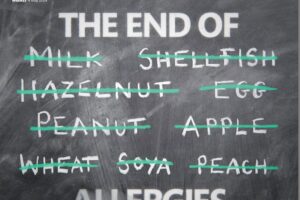 THE END OF
MILK SHELLFISH
HAZELNUT EGG
PEANUT APPLE
WHEAT SOYA PEACH
ALLERGIES